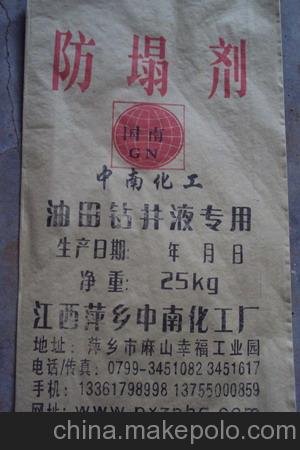 防塌剂
国南
GN
中南化工
油田钻井液专用
生产日期: 年 月 日
净重: 25kg
江西萍乡中南化工厂
地址: 萍乡市麻山幸福工业园
电话/传真: 0799-3451082 3451617
手机: 13361798998 13755000859
china.makepolo.com